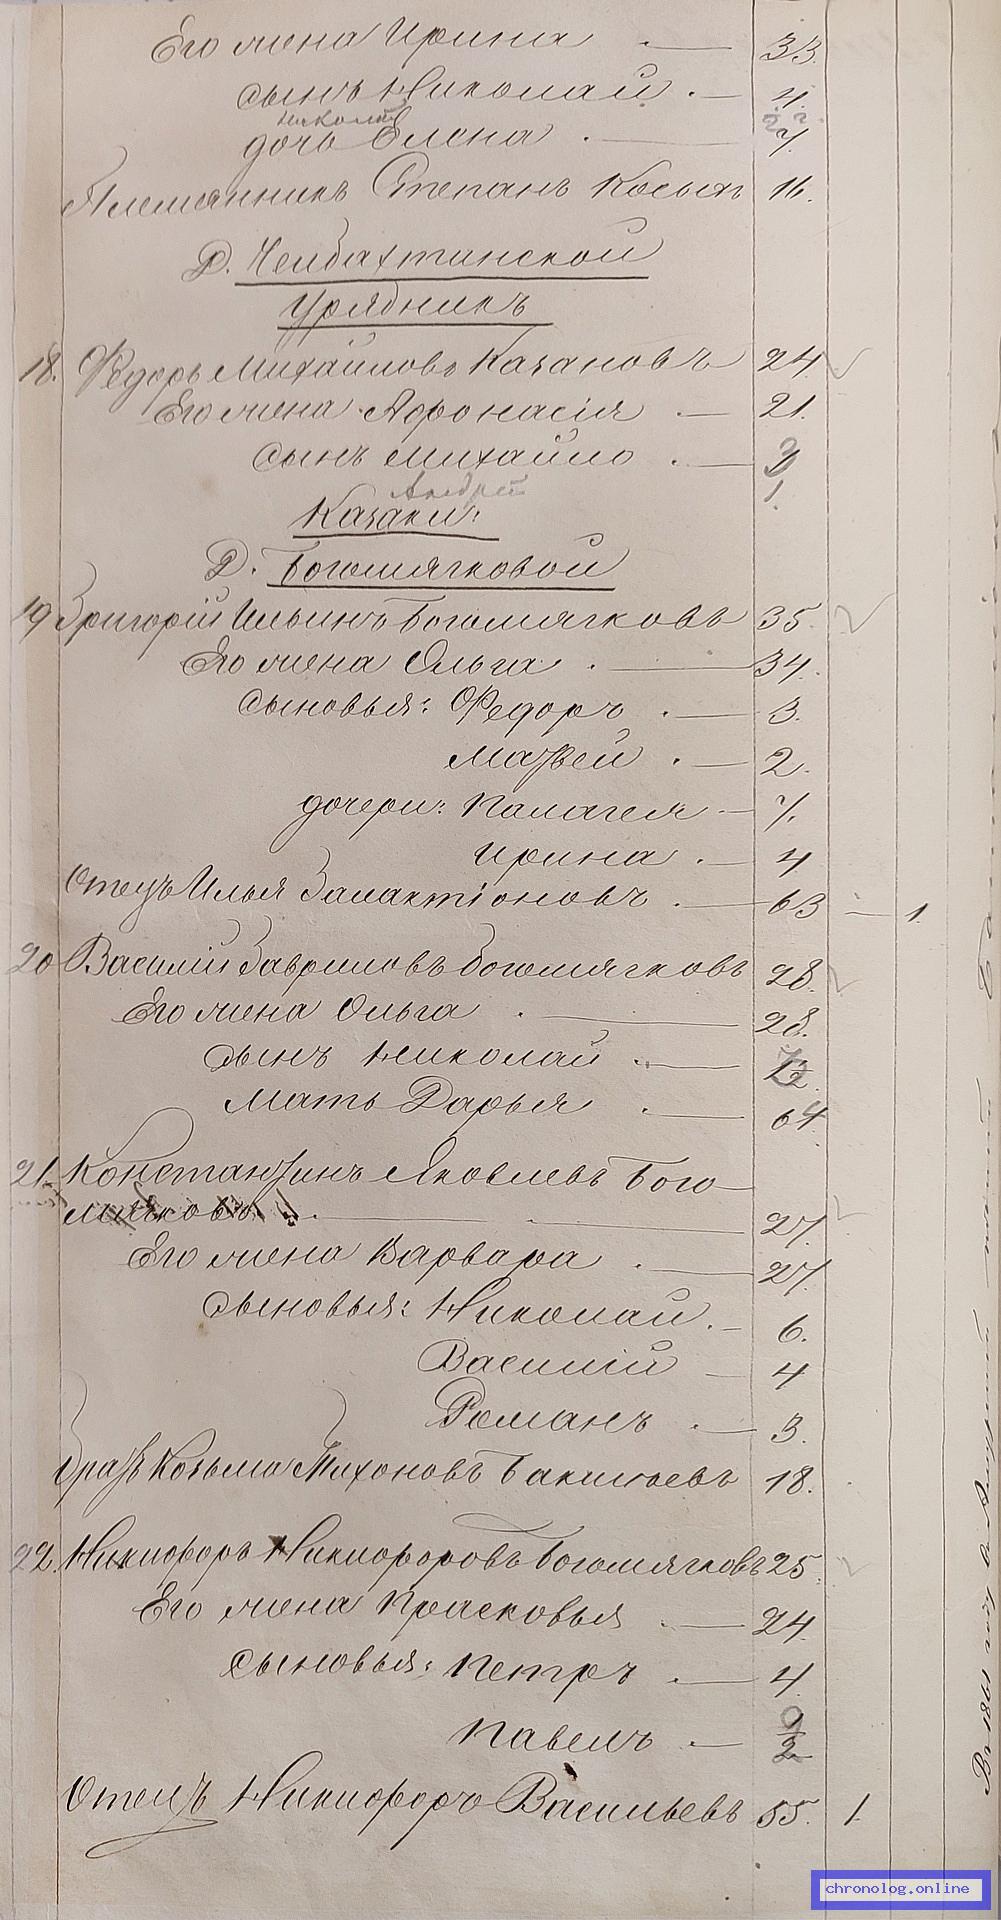 Его жена Ирина 33.
сынъ Николай 4.
дочь Елена
Племянникъ Степанъ Косыхъ 16.
Д. Челбахтинской
Урядникъ
18. Федоръ Михайловъ Казановъ 24.
Его жена Афонасія 21.
сынъ Михайло
Андрей 1.
Казаки:
Д. Богомягковой
19 Григорій Ильинъ Богомягковъ 35.
Его жена Ольга 34.
сыновья: Федоръ 3.
Матвей 2.
дочери: Палагея 7.
Ирина 4
Отецъ Илья Галактіоновъ 63 — 1.
20 Василій Гавриловъ Богомягковъ 28.
Его жена Ольга 28.
сынъ Николай
Мать Дарья 64.
21. Константинъ Яковлевъ Бого-
мягковъ 27.
Его жена Варвара 27.
сыновья: Николай 6.
Василій 4
Романъ 3.
Братъ Козьма Тихоновъ 18.
22. Никифоръ Никифоровъ Богомягковъ 25.
Его жена Прасковья 24.
сыновья: Петръ 4.
Павелъ 2
Отецъ Никифоръ Васильевъ 55. 1.
Въ 1861 году
chronolog.online